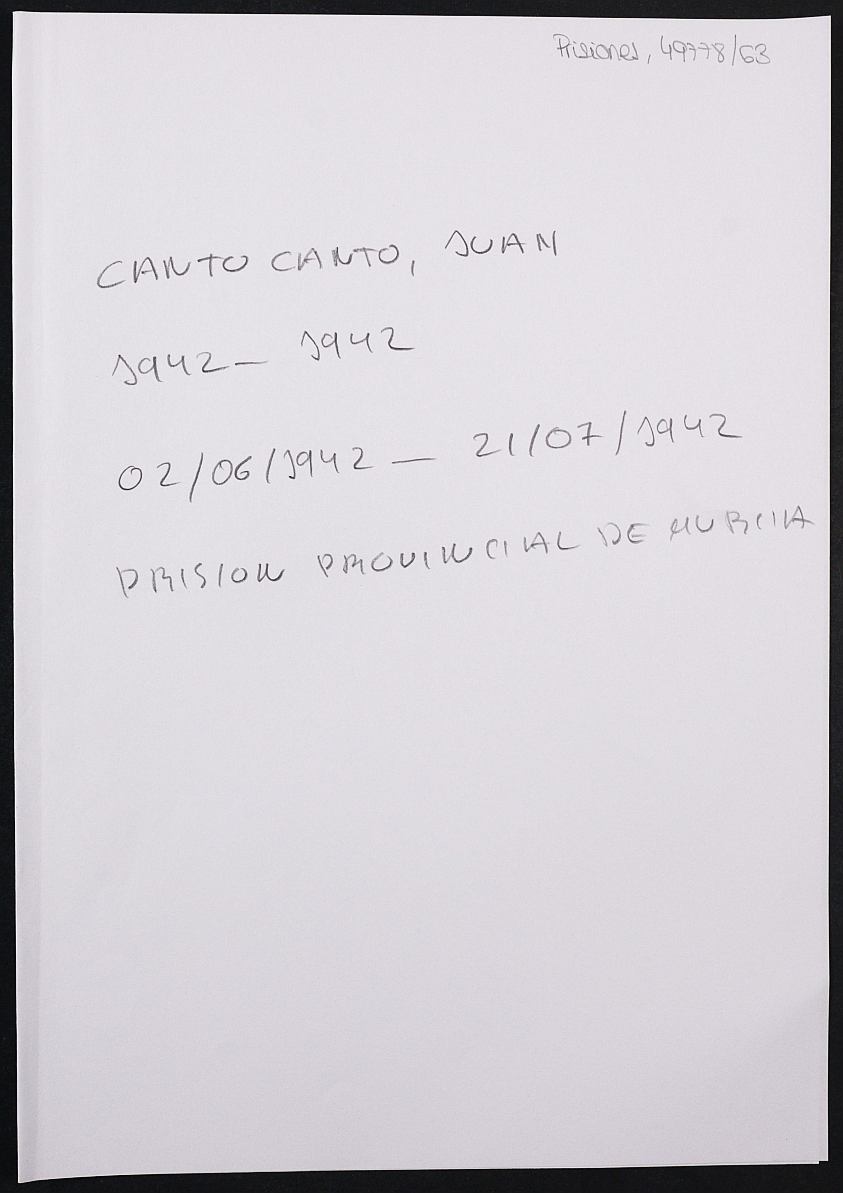 Prisiones, 49778/63
CANTO CANTO, JUAN
1942 — 1942
02/06/1942 — 21/07/1942
PRISION PROVINCIAL DE MURCIA